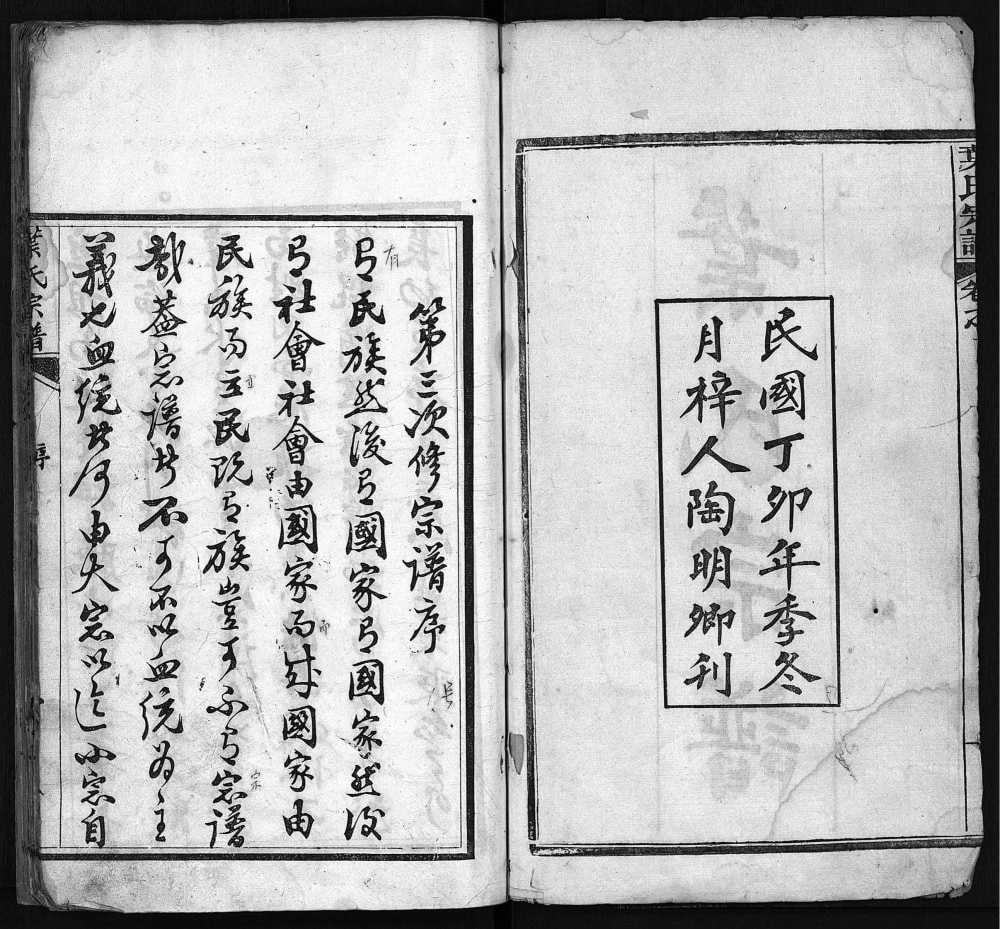 葉氏宗譜
民國丁卯年季冬
月梓人陶明卿刊
第三次修宗譜序
有民族然後有國家有國家然後
有社會社會由國家而成國家由
民族而立民既有族豈可不有宗譜
哉蓋宗譜者不可不以血統為主
義也血統者何由大宗以迄小宗自
葉氏宗譜
序